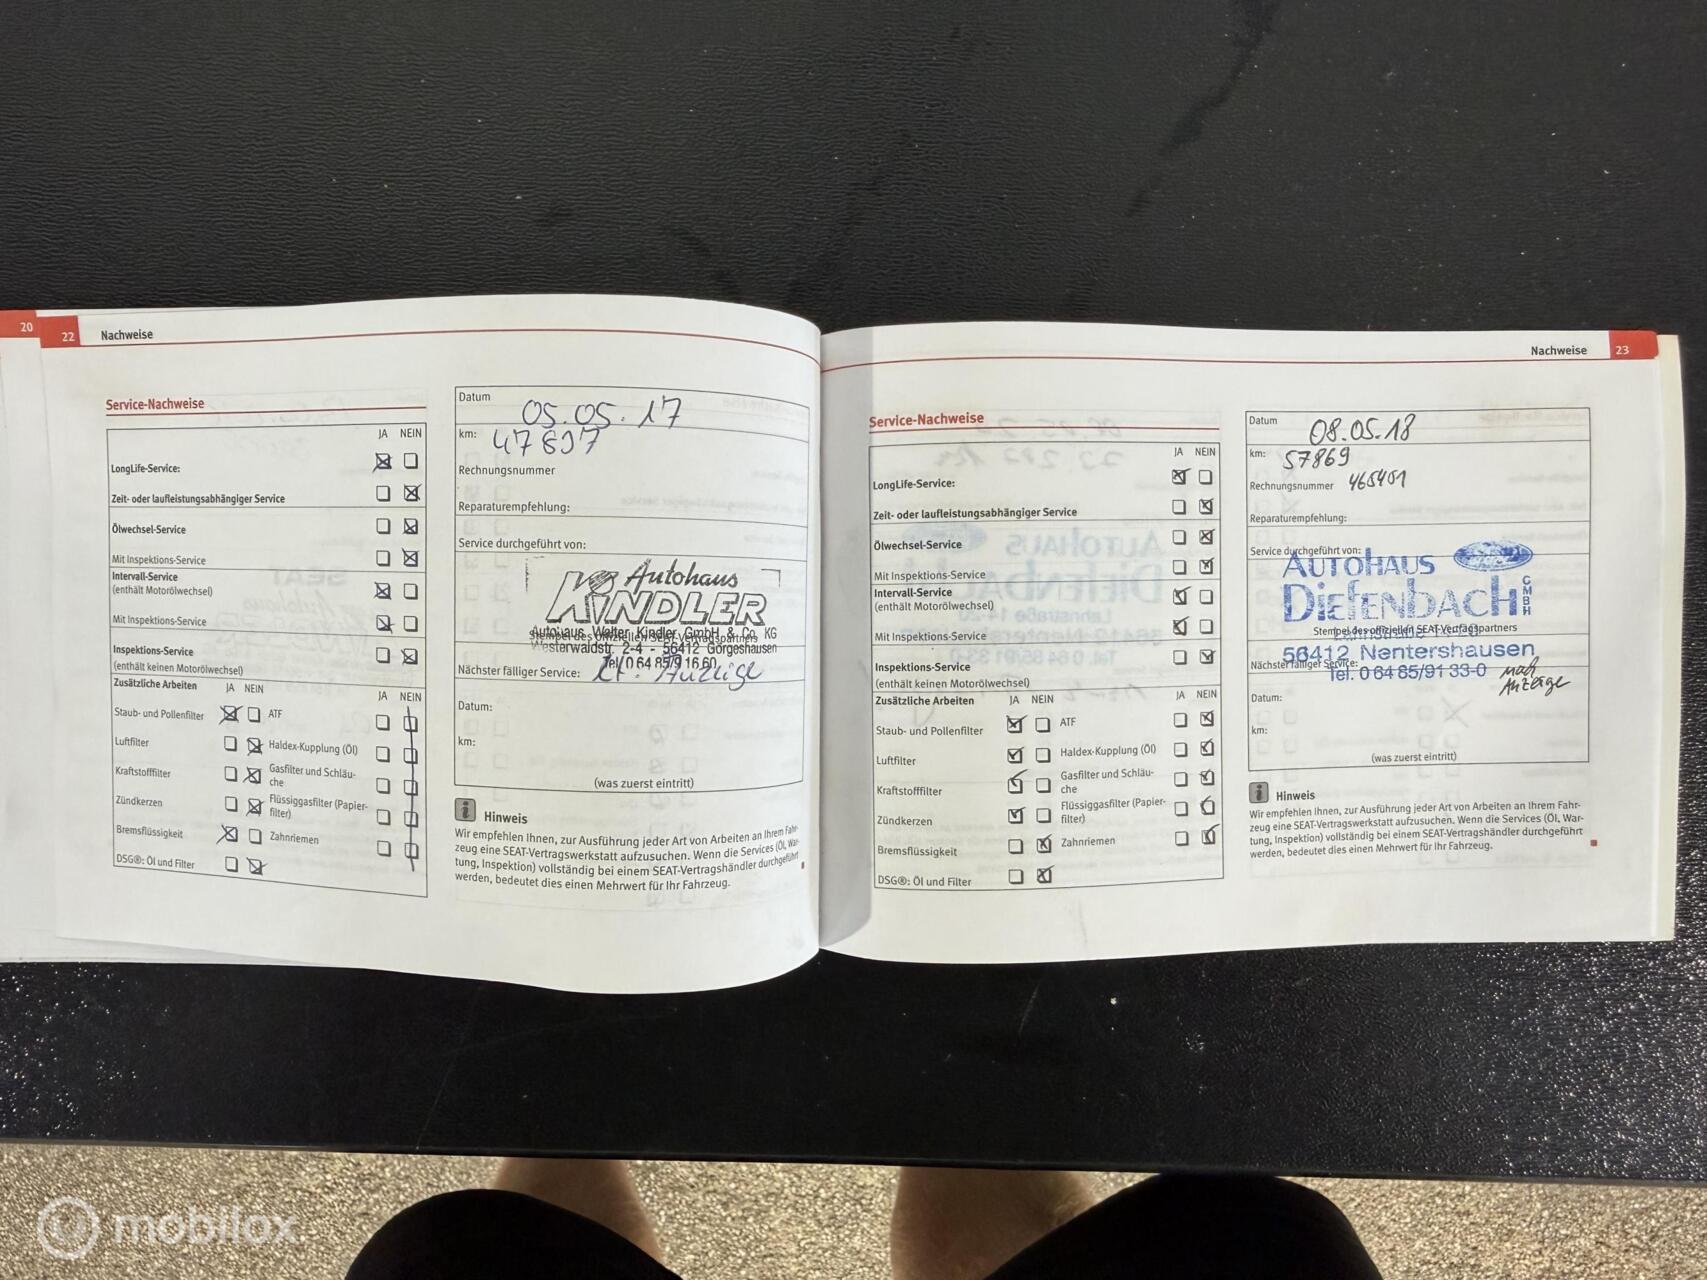 20
22
Nachweise
Service-Nachweise
JA NEIN
LongLife-Service:
Zeit- oder laufleistungsabhängiger Service
Ölwechsel-Service
Mit Inspektions-Service
Intervall-Service
(enthält Motorölwechsel)
Mit Inspektions-Service
Inspektions-Service
(enthält keinen Motorölwechsel)
Zusätzliche Arbeiten JA NEIN JA NEIN
Staub- und Pollenfilter ATF
Luftfilter Haldex-Kupplung (Öl)
Kraftstofffilter Gasfilter und Schläu-
che
Zündkerzen Flüssiggasfilter (Papier-
filter)
Bremsflüssigkeit Zahnriemen
DSG®: Öl und Filter
Datum 05.05.17
km:
Rechnungsnummer
Reparaturempfehlung:
Service durchgeführt von:
Autohaus
KINDLER
Autohaus Walter Kindler GmbH & Co. KG
Stempel des offiziellen SEAT-Vertragspartners
Westerwaldstr. 2-4 - 56412 Görgeshausen
Tel. 0 64 85/9 16 60
Nächster fälliger Service: lt. Anzeige
Datum:
km:
(was zuerst eintritt)
Hinweis
Wir empfehlen Ihnen, zur Ausführung jeder Art von Arbeiten an Ihrem Fahr-
zeug eine SEAT-Vertragswerkstatt aufzusuchen. Wenn die Services (Öl, War-
tung, Inspektion) vollständig bei einem SEAT-Vertragshändler durchgeführt
werden, bedeutet dies einen Mehrwert für Ihr Fahrzeug.
Nachweise 23
Service-Nachweise
JA NEIN
LongLife-Service:
Zeit- oder laufleistungsabhängiger Service
Ölwechsel-Service
Mit Inspektions-Service
Intervall-Service
(enthält Motorölwechsel)
Mit Inspektions-Service
Inspektions-Service
(enthält keinen Motorölwechsel)
Zusätzliche Arbeiten JA NEIN JA NEIN
Staub- und Pollenfilter ATF
Luftfilter Haldex-Kupplung (Öl)
Kraftstofffilter Gasfilter und Schläu-
che
Zündkerzen Flüssiggasfilter (Papier-
filter)
Bremsflüssigkeit Zahnriemen
DSG®: Öl und Filter
Datum 08.05.18
km: 57869
Rechnungsnummer 465401
Reparaturempfehlung:
Service durchgeführt von:
AUTOHAUS
DIEFENBACH GMBH
Stempel des offiziellen SEAT-Vertragspartners
56412 Nentershausen
Nächster fälliger Service:
Tel. 0 64 85/91 33-0 nach
Anzeige
Datum:
km:
(was zuerst eintritt)
Hinweis
Wir empfehlen Ihnen, zur Ausführung jeder Art von Arbeiten an Ihrem Fahr-
zeug eine SEAT-Vertragswerkstatt aufzusuchen. Wenn die Services (Öl, War-
tung, Inspektion) vollständig bei einem SEAT-Vertragshändler durchgeführt
werden, bedeutet dies einen Mehrwert für Ihr Fahrzeug.
mobilox